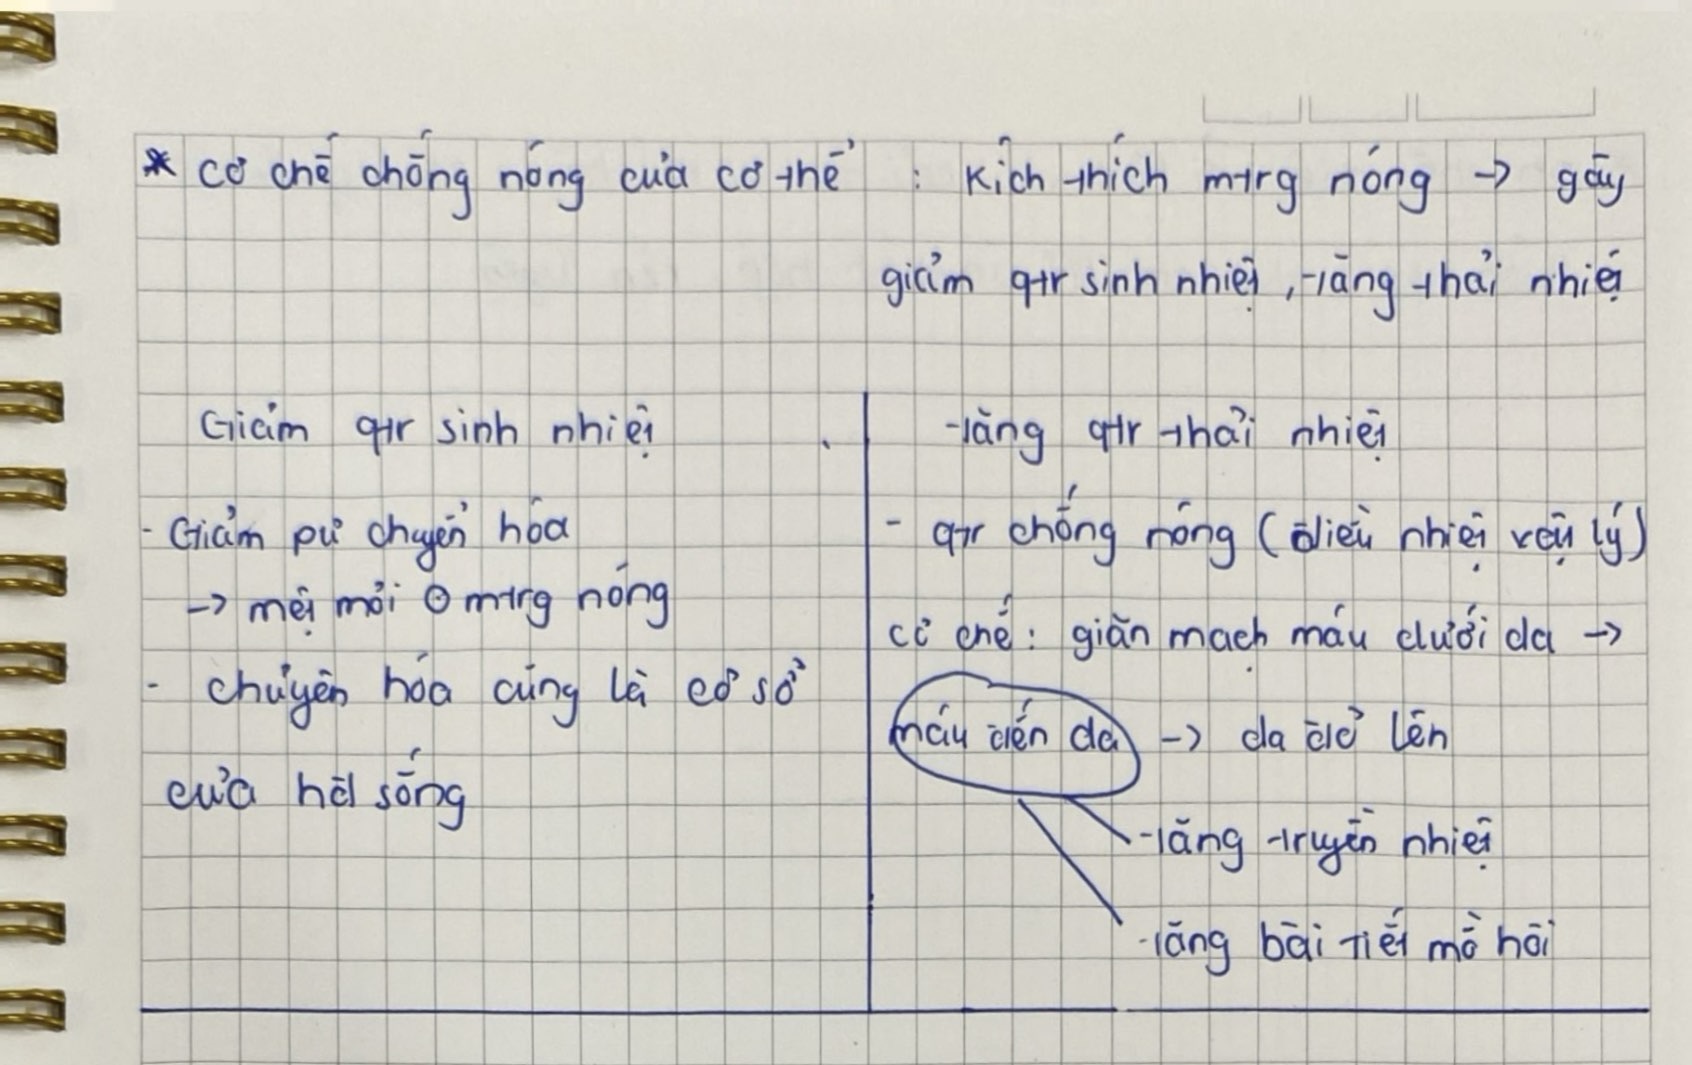 * cơ chế chống nóng của cơ thể : Kích thích mtrg nóng → gây
giảm qtr sinh nhiệt, tăng thải nhiệt
Giảm qtr sinh nhiệt
- Giảm pư chuyển hóa
→ mệt mỏi ⊖ mtrg nóng
- chuyển hóa cũng là cơ sở
của hđ sống
tăng qtr thải nhiệt
- qtr chống nóng (điều nhiệt vật lý)
cơ chế: giãn mạch máu dưới da →
máu đến da → da đỏ lên
tăng truyền nhiệt
tăng bài tiết mồ hôi